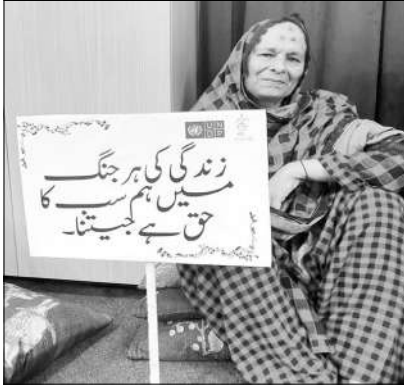 UN
DP
زندگی کی ہر جنگ
میں ہم سب کا
حق ہے جیتنا۔